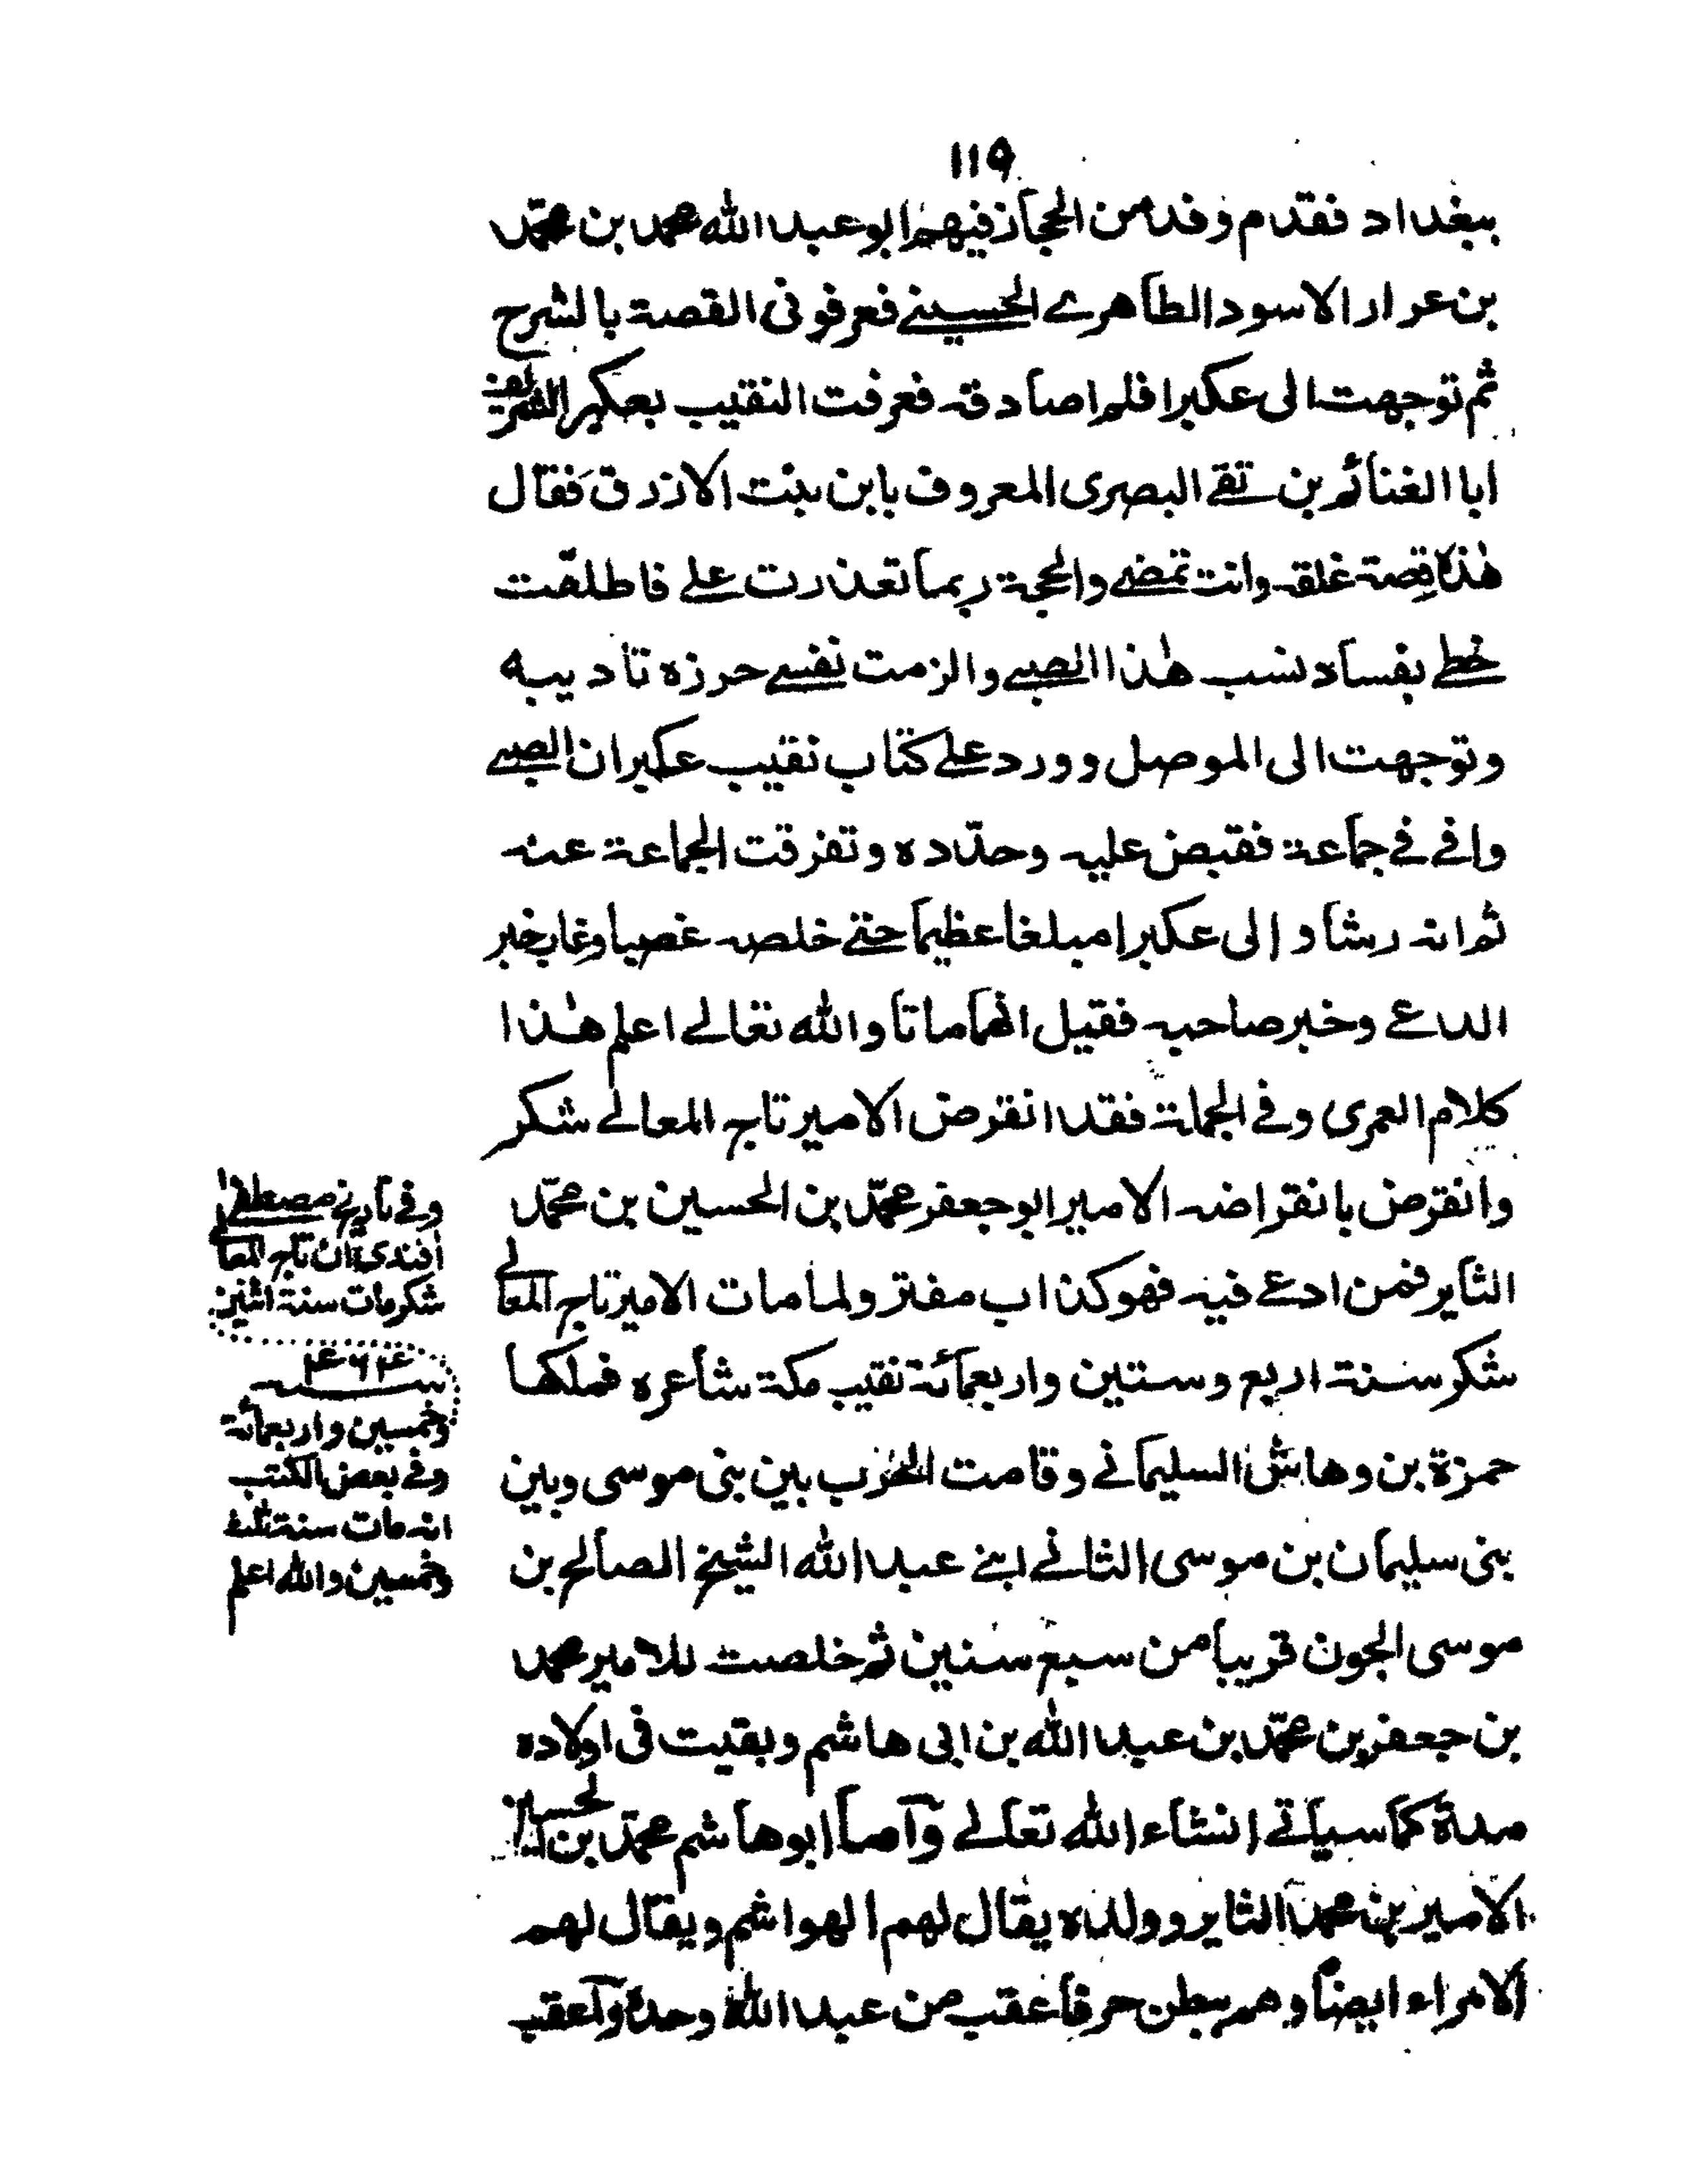 ١١٩
ببغداد فقدم وفد من الحجاز فيهم ابو عبد الله محمد بن محمّد
بن عرار الاسود الطاهرے الحسينے فعرفونى القصة بالشرح
ثم توجهت الى عكبرا فلم اصادقه فعرفت النقيب بعكبرا الشريف
ابا الغنائم بن تقے البصرى المعروف بابن بنت الازرق فقال
هٰذه قصة غلقه وانت تمضے والحجة ربما تعذرت علے فاطلقت
خطے بفساد نسب هٰذا الصبے والزمت نفسے حرزه تاديبه
وتوجهت الى الموصل وورد علے كتاب نقيب عكبرا ن الصبے
وافے فے جماعة فقبض عليه وحدّده وتفرقت الجماعة عنه
ثم انه رشا و الى عكبرا مبلغا عظيما حتے خلصه غصبا وغاب خبر
الداعے وخبر صاحبه فقيل انهما ماتا والله تعالے اعلم هٰذا
كلام العمرى وفے الجملة فقد انقرض الامير تاج المعالے شكر
وانقرض بانقراضه الامير ابو جعفر محمّد بن الحسين بن محمّد
الثاير فمن ادعے فيه فهو كذاب مفتر ولما مات الامير تاج المعالے
شكر سنة اربع وستين واربعمائة نقيب مكة شاعره فملكها
حمزة بن وهاش السليمانے وقامت الحرب بين بنى موسى وبين
بنى سليمان بن موسى الثانے ابنے عبد الله الشيخ الصالح بن
موسى الجون قريبا من سبع سنين ثم خلصت للامير محمد
بن جعفر بن محمّد بن عبد الله بن ابى هاشم وبقيت فى اولاده
مدة كما سياتے انشاء الله تعالے وآما ابو هاشم محمّد بن الحسين
الامير بن محمد الثاير وولده يقال لهم الهواشم ويقال لهم
الامراء ايضا وهم بطن حرفا عقب من عبد الله وحده وآعقب
وفے تاريخ مصطفے
افندى ان تاج المعا
شكر مات سنة اثنين
٤٦٤
سنه
وخمسين واربعمائة
وفے بعض الكتب
انه مات سنة ثلث
وخمسين والله اعلم